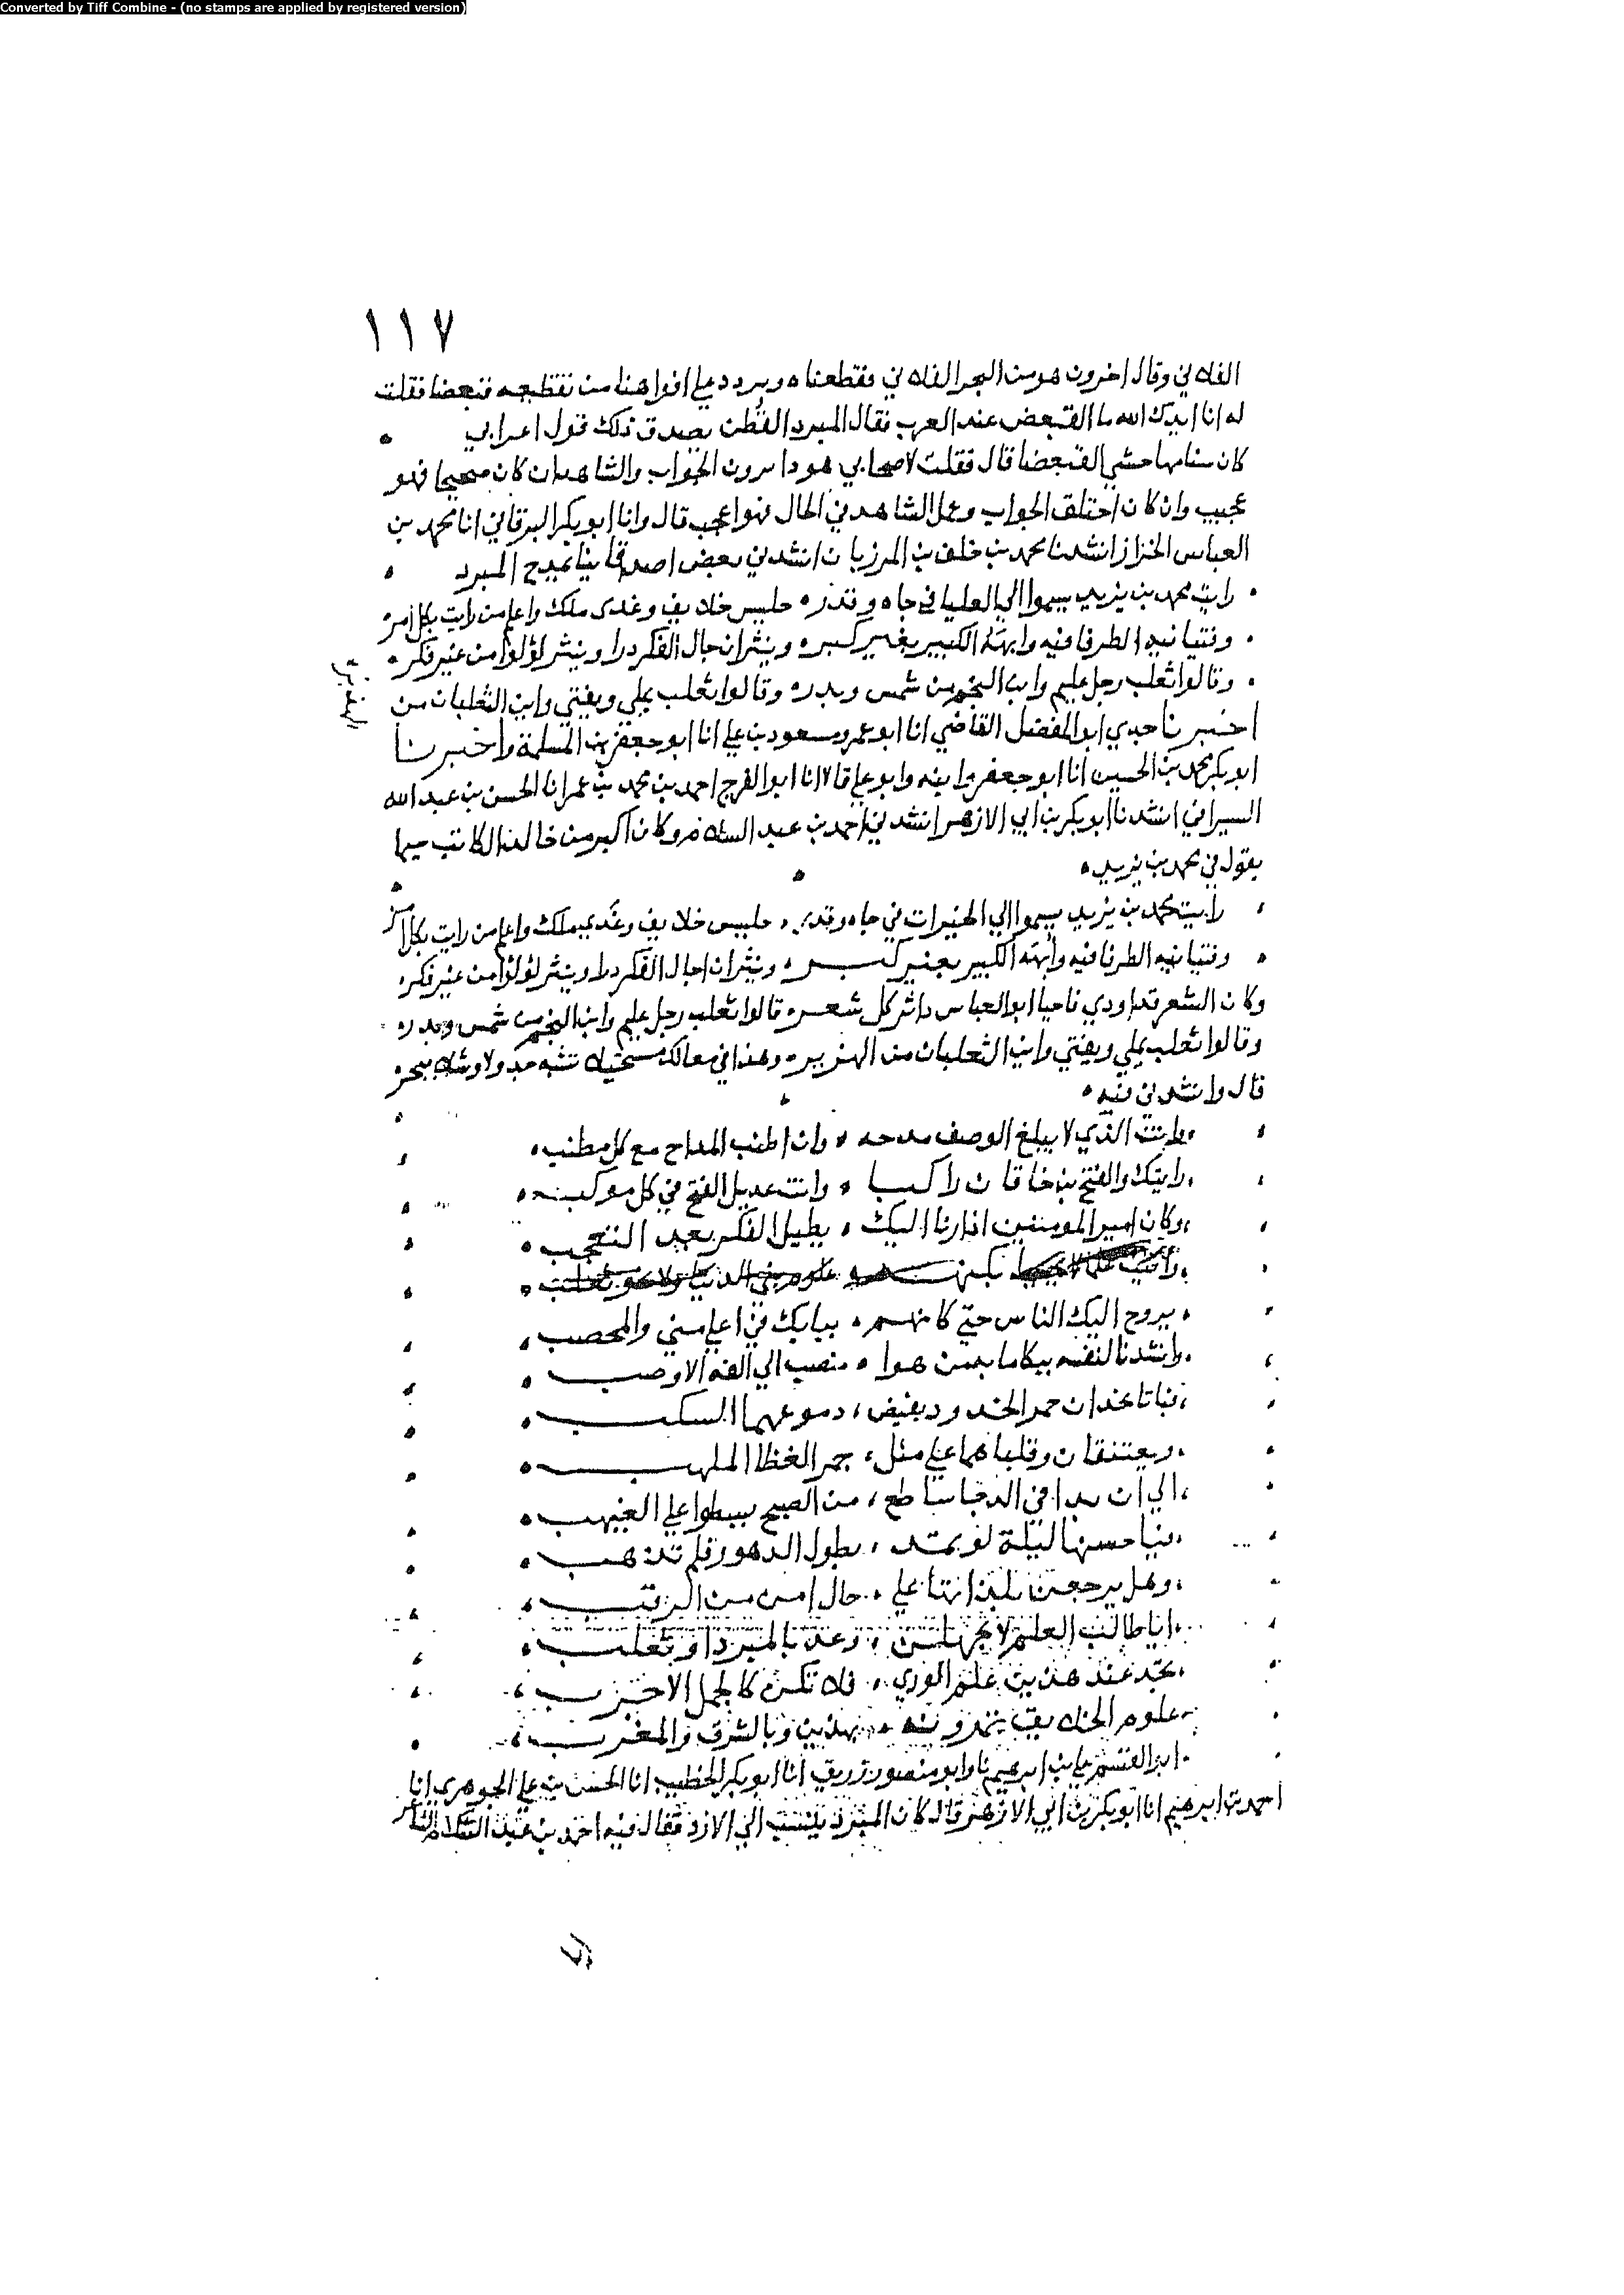 Converted by Tiff Combine - (no stamps are applied by registered version)
١١٧
الفلاني وقال اخرون هو من البحر الفلاني فقطعناه وتردد علي افواهنا من تقطيعه قبعضا فقلت
له انا ايدك الله ما القبعض عند العرب فقال المبرد القطن يصدق ذلك قول اعرابي
كان سنامها حشي القبعضا قال فقلت لاصحابي هو ذا ترون الجواب والشاهد ان كان صحيحا فهو
عجيب وان كان اختلق الجواب وعمل الشاهد في الحال فهو اعجب قال وانا ابو بكر البرقاني انا محمد بن
العباس الخزاز انشدنا محمد بن خلف بن المرزبان انشدني بعض اصدقاينا يمدح المبرد
رايت محمد بن يزيد يسموا الي العليا في جاه وقدر جليس خلايف وغذي ملك واعلم من رايت بكل امر
وفتيانيه الظرفا فيه وابهة الكبير بغير كبر وينثر ان جال الفكر درا وينثر لؤلؤا من غير فكر
وقالوا ثعلب رجل عليم واين النجم من شمس وبدر وقالوا ثعلب يملي ويفتي واين الثعلبان من
الهزبر
اخبرنا جدي ابو المفضل القاضي انا ابو عمرو مسعود بن علي انا ابو جعفر بن المسلمة واخبرنا
ابو بكر محمد بن الحسين انا ابو جعفر وابنه وابو علي قالا انا ابو الفرج احمد بن محمد بن عمر انا الحسن بن عبد الله
السيرافي انشدنا ابو بكر بن ابي الازهر انشدني احمد بن عبد السلام وكان اكبر من خالد الكاتب
يقول في محمد بن يزيد
رايت محمد بن يزيد يسموا الي الخيرات في جاه وقدر جليس خلايف وغذي ملك واعلم من رايت بكل امر
وفتيانيه الظرفا فيه وابهة الكبير بغير كبر وينثر ان اجال الفكر درا وينثر لؤلؤا من غير فكر
وكان الشعر قد اودي فاحيا ابو العباس داثر كل شعر قالوا ثعلب رجل عليم واين النجم من شمس وبدر
وقالوا ثعلب يملي ويفتي واين الثعلبان من الهزبر وهذا في مقالك مستحيل تشبه جدولا وشلا ببحر
قال وانشدني فيه
وانت الذي لا يبلغ الوصف مدحه وان اطنب المداح مع كل مطنب
رايتك والفتح بن خاقان راكبا وانت عديل الفتح في كل موكب
وكان امير المومنين اذا رنا اليك يطيل الفكر بعد التعجب
علوم بني الدنيا ولا نحو ثعلب
يروح اليك الناس حتي كانهم ببابك في اعلي مني والمحصب
وانشدنا لنفسه بيكاما بمن هوا منصب الي الفه الاوصب
فباتا بخدان حمر الخدود يفيض دموعهما السكب
ويعتنقان وقلباهما علي مثل جمر الغظا الملهب
الي ان بدا في الدجا ساطع من الصبح يسطوا علي الغيهب
فيا حسنها ليلة لو تمتد بطول الدهور فلم تذهب
وهل يرجعن بلذاتها علي حال امن من الرقب
ايا طالب العلم لا تجهلن وعذ بالمبرد او ثعلب
تجد عند هذين علم الوري فلا تكن كالجمل الاجرب
علوم الخلايق مقرونة بهذين وبالشرق والمغرب
ابو القسم علي بن ابرهيم نا وابو منصور بن زريق انا ابو بكر الخطيب انا الحسن بن علي الجوهري انا
احمد بن ابرهيم انا ابو بكر بن ابي الازهر قال كان المبرد ينتسب الي الازد فقال فيه احمد بن عبد السلام الشاعر